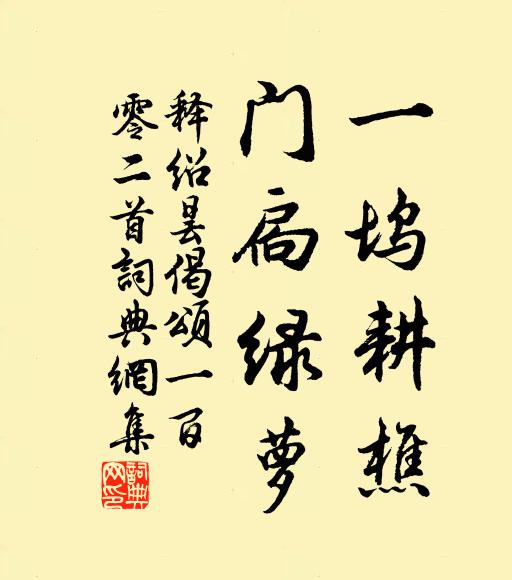 一坞耕樵
门扃绿萝
释绍昙偈頌一百
零二首詞典網集
詞典网印